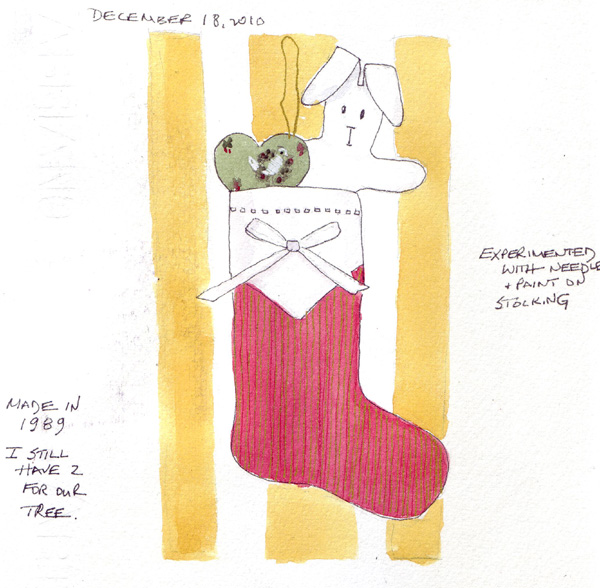 DECEMBER 18, 2010
EXPERIMENTED
WITH NEEDLE
+ PAINT ON
STOCKING
MADE IN
1989
I STILL
HAVE 2
FOR OUR
TREE.